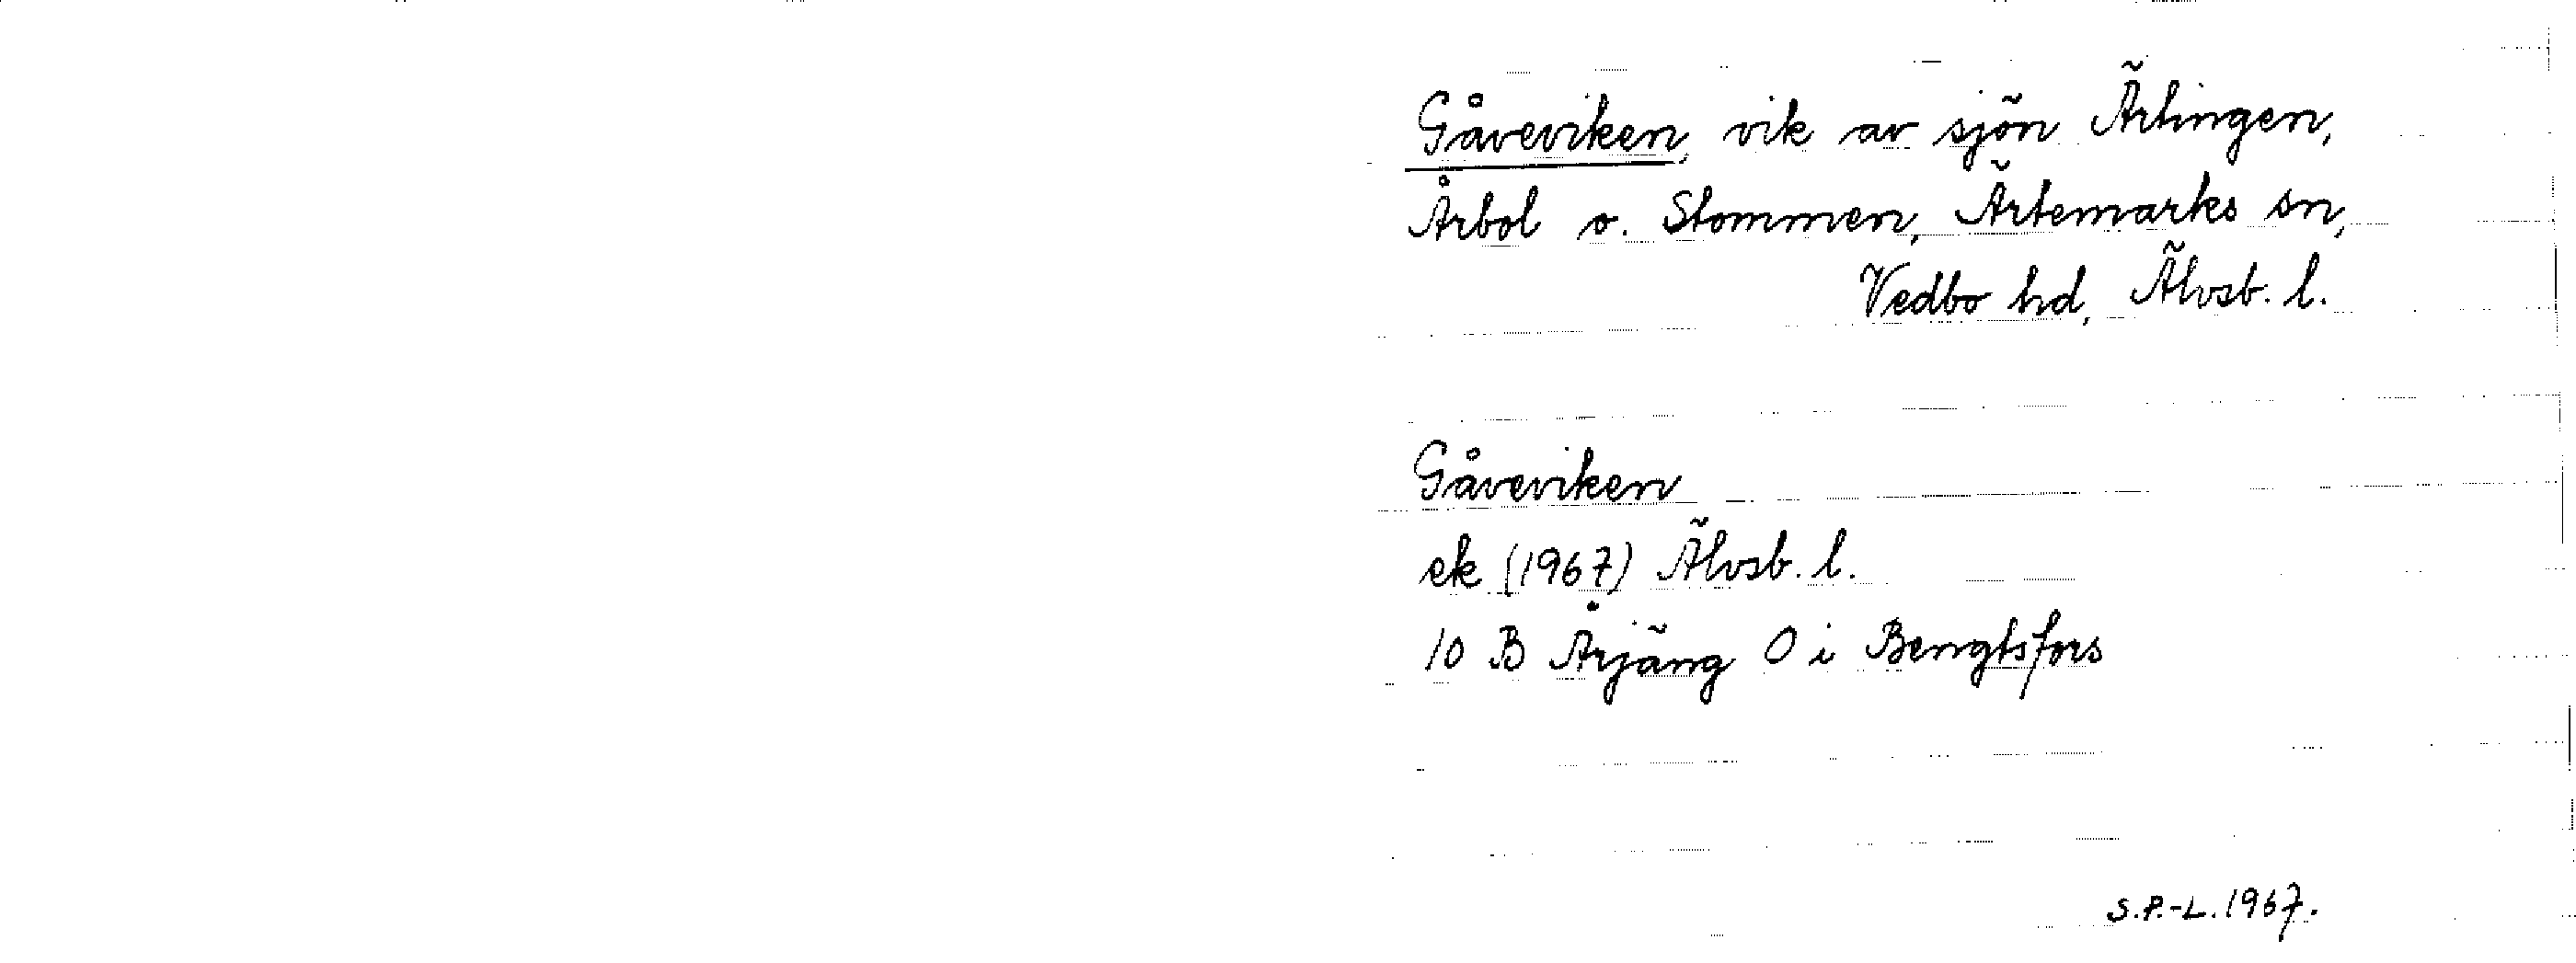 Gåveviken, vik av sjön Ärtingen,
Årbol o. Stommen, Ärtemarks sn,
Vedbo hd, Älvsb. l.
Gåveviken
ek (1967) Älvsb. l.
10 B Årjäng O i Bengtsfors
S.P.-L. 1967.